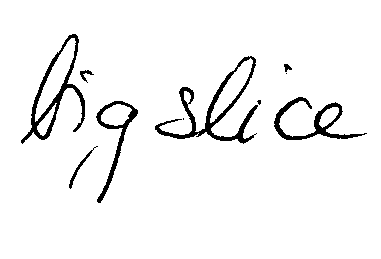 big slice